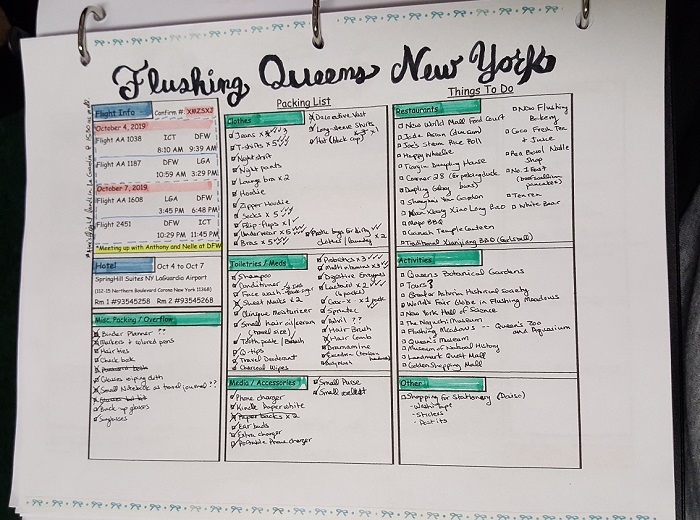 Flushing Queens New York
Flight Info
Confirm. #: XMZSXZ
October 4, 2019
Flight AA 1038 ICT DFW
8:10 AM 9:39 AM
Flight AA 1187 DFW LGA
10:59 AM 3:29 PM
October 7, 2019
Flight AA 1608 LGA DFW
3:45 PM 6:48 PM
Flight 2451 DFW ICT
10:29 PM 11:45 PM
*Meeting up with Anthony and Nelle at DFW
Hotel
Oct 4 to Oct 7
SpringHill Suites NY LaGuardia Airport
(112-15 Northern Boulevard Corona New York 11368)
Rm 1 #93545258 Rm 2 #93545268
Misc Packing / Overflow
Binder Planner ??
Markers + colored pens
Hair ties
Check book
Glasses wiping cloth
Small Notebook as travel journal ??
Back-up glasses
Sunglasses
Packing List
Clothes
Jeans x
T-shirts x 5
Night shirt
Night pants
Lounge bra x 2
Hoodie
Zipper Hoodie
Socks x 5
Flip-flops x 1
Underwear x 5
Bras x 5
Decorative Vest
Long-sleeve Shirts
Hat (black cap) x 1
Plastic bags for dirty
clothes / laundry x 2
Toiletries / Meds
Shampoo
Conditioner
Face wash
Sweat Mats x 2
Clinique Moisturizer
Small hair oil/cream
(travel size)
Tooth paste / Brush
Q-tips
Travel Deodorant
Charcoal Wipes
Probiotics x 3
Multivitamins x 3
Digestive Enzymes
Lactaid x 2
Gas-X x 1 pack
Sprintec
Advil ??
Hair Brush
Hair Comb
Dramamine
Excedrin
Media / Accessories
Phone charger
Kindle Paperwhite
Paper backs x 2
Ear buds
Extra charger
Portable Phone charger
Small Purse
Small wallet
Things To Do
Restaurants
New World Mall Food Court
Jade Asian (dim sum)
Joe's Steam Rice Roll
Happy Wheelie
Tianjin Dumpling House
Corner 28 (for peking duck)
Dumpling Galaxy
Shanghai You Garden
Nan Xiang Xiao Long Bao
Mapo BBQ
Ganesh Temple Canteen
Traditional Xianjiang BBQ
New Flushing
Bakery
Coco Fresh Tea
+ Juice
Noodle
Shop
No. 1 East
(beef scallion
pancakes)
Ten Ren
White Bear
Activities
Queens Botanical Gardens
Tours?
Greater Astoria Historical Society
World's Fair Globe in Flushing Meadows
New York Hall of Science
The Noguchi Museum
Flushing Meadows -- Queens Zoo
and Aquarium
Queens Museum
Museum of Natural History
Landmark Quest Mall
Golden Shopping Mall
Other
Shopping for Stationery (Daiso)
- Washi tape
- Stickers
- Post its